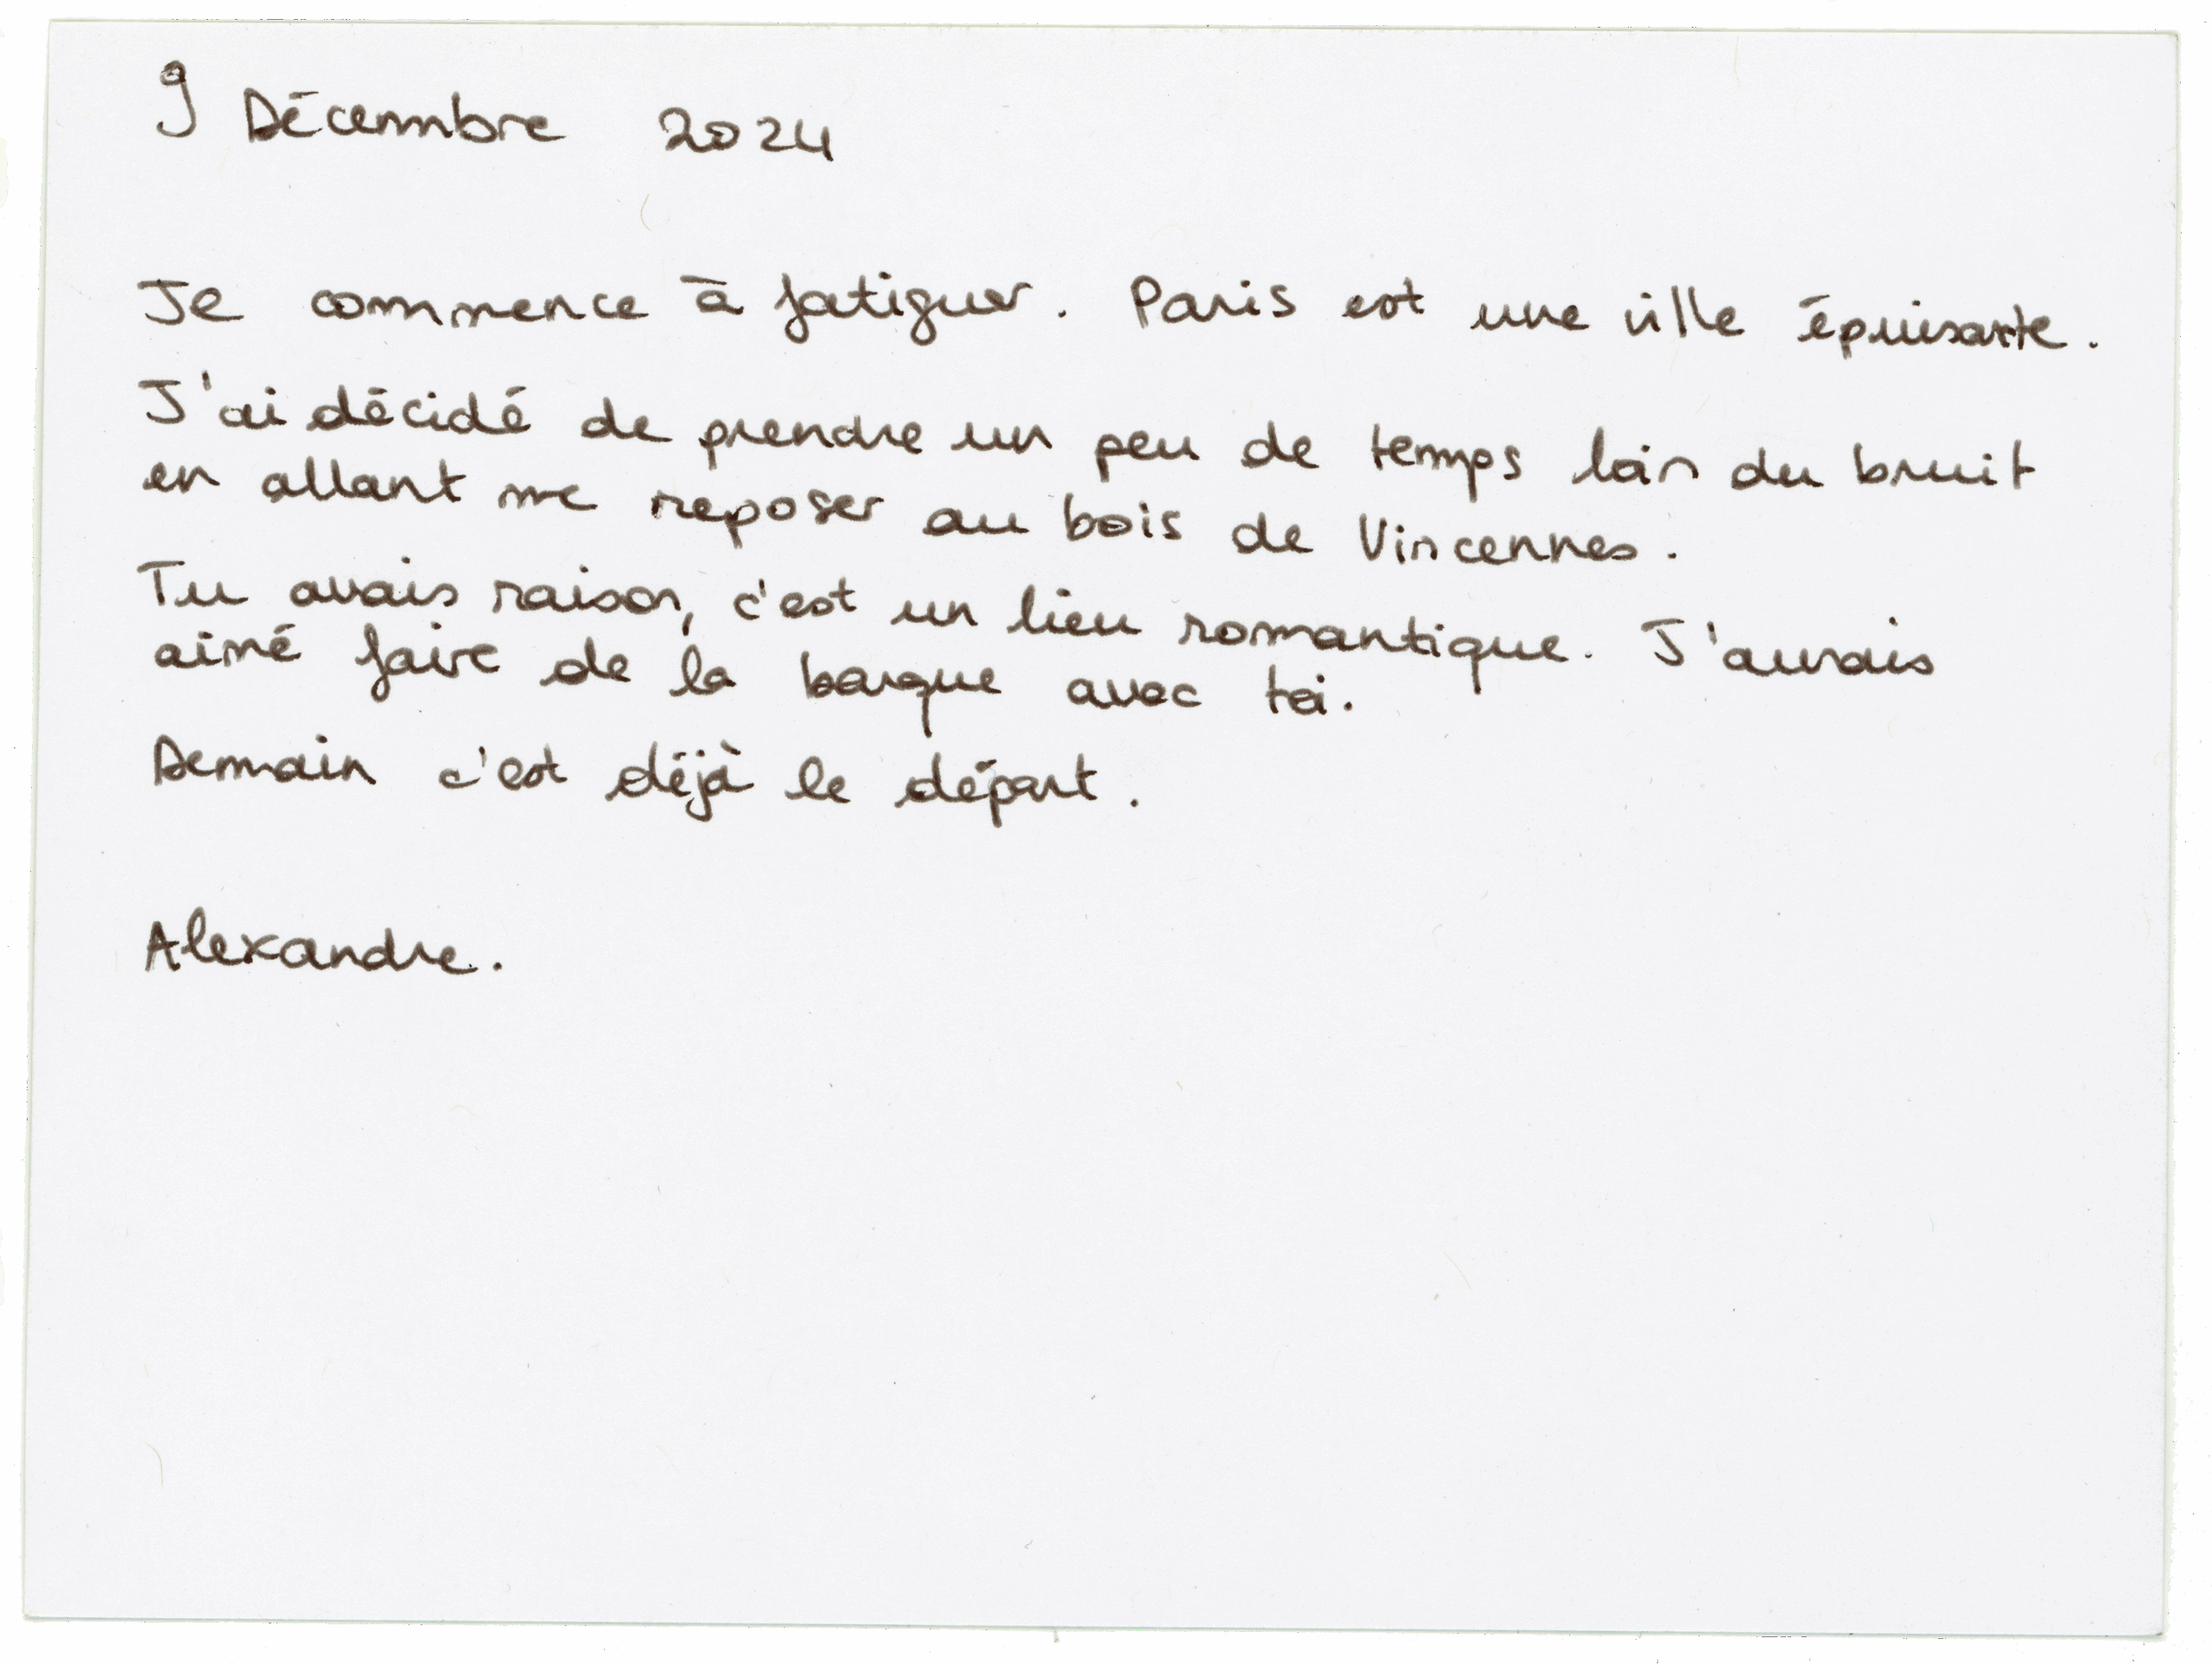 9 Décembre 2024
Je commence à fatiguer. Paris est une ville épuisante.
J'ai décidé de prendre un peu de temps loin du bruit
en allant me reposer au bois de Vincennes.
Tu avais raison, c'est un lieu romantique. J'aurais
aimé faire de la barque avec toi.
Demain c'est déjà le départ.
Alexandre.